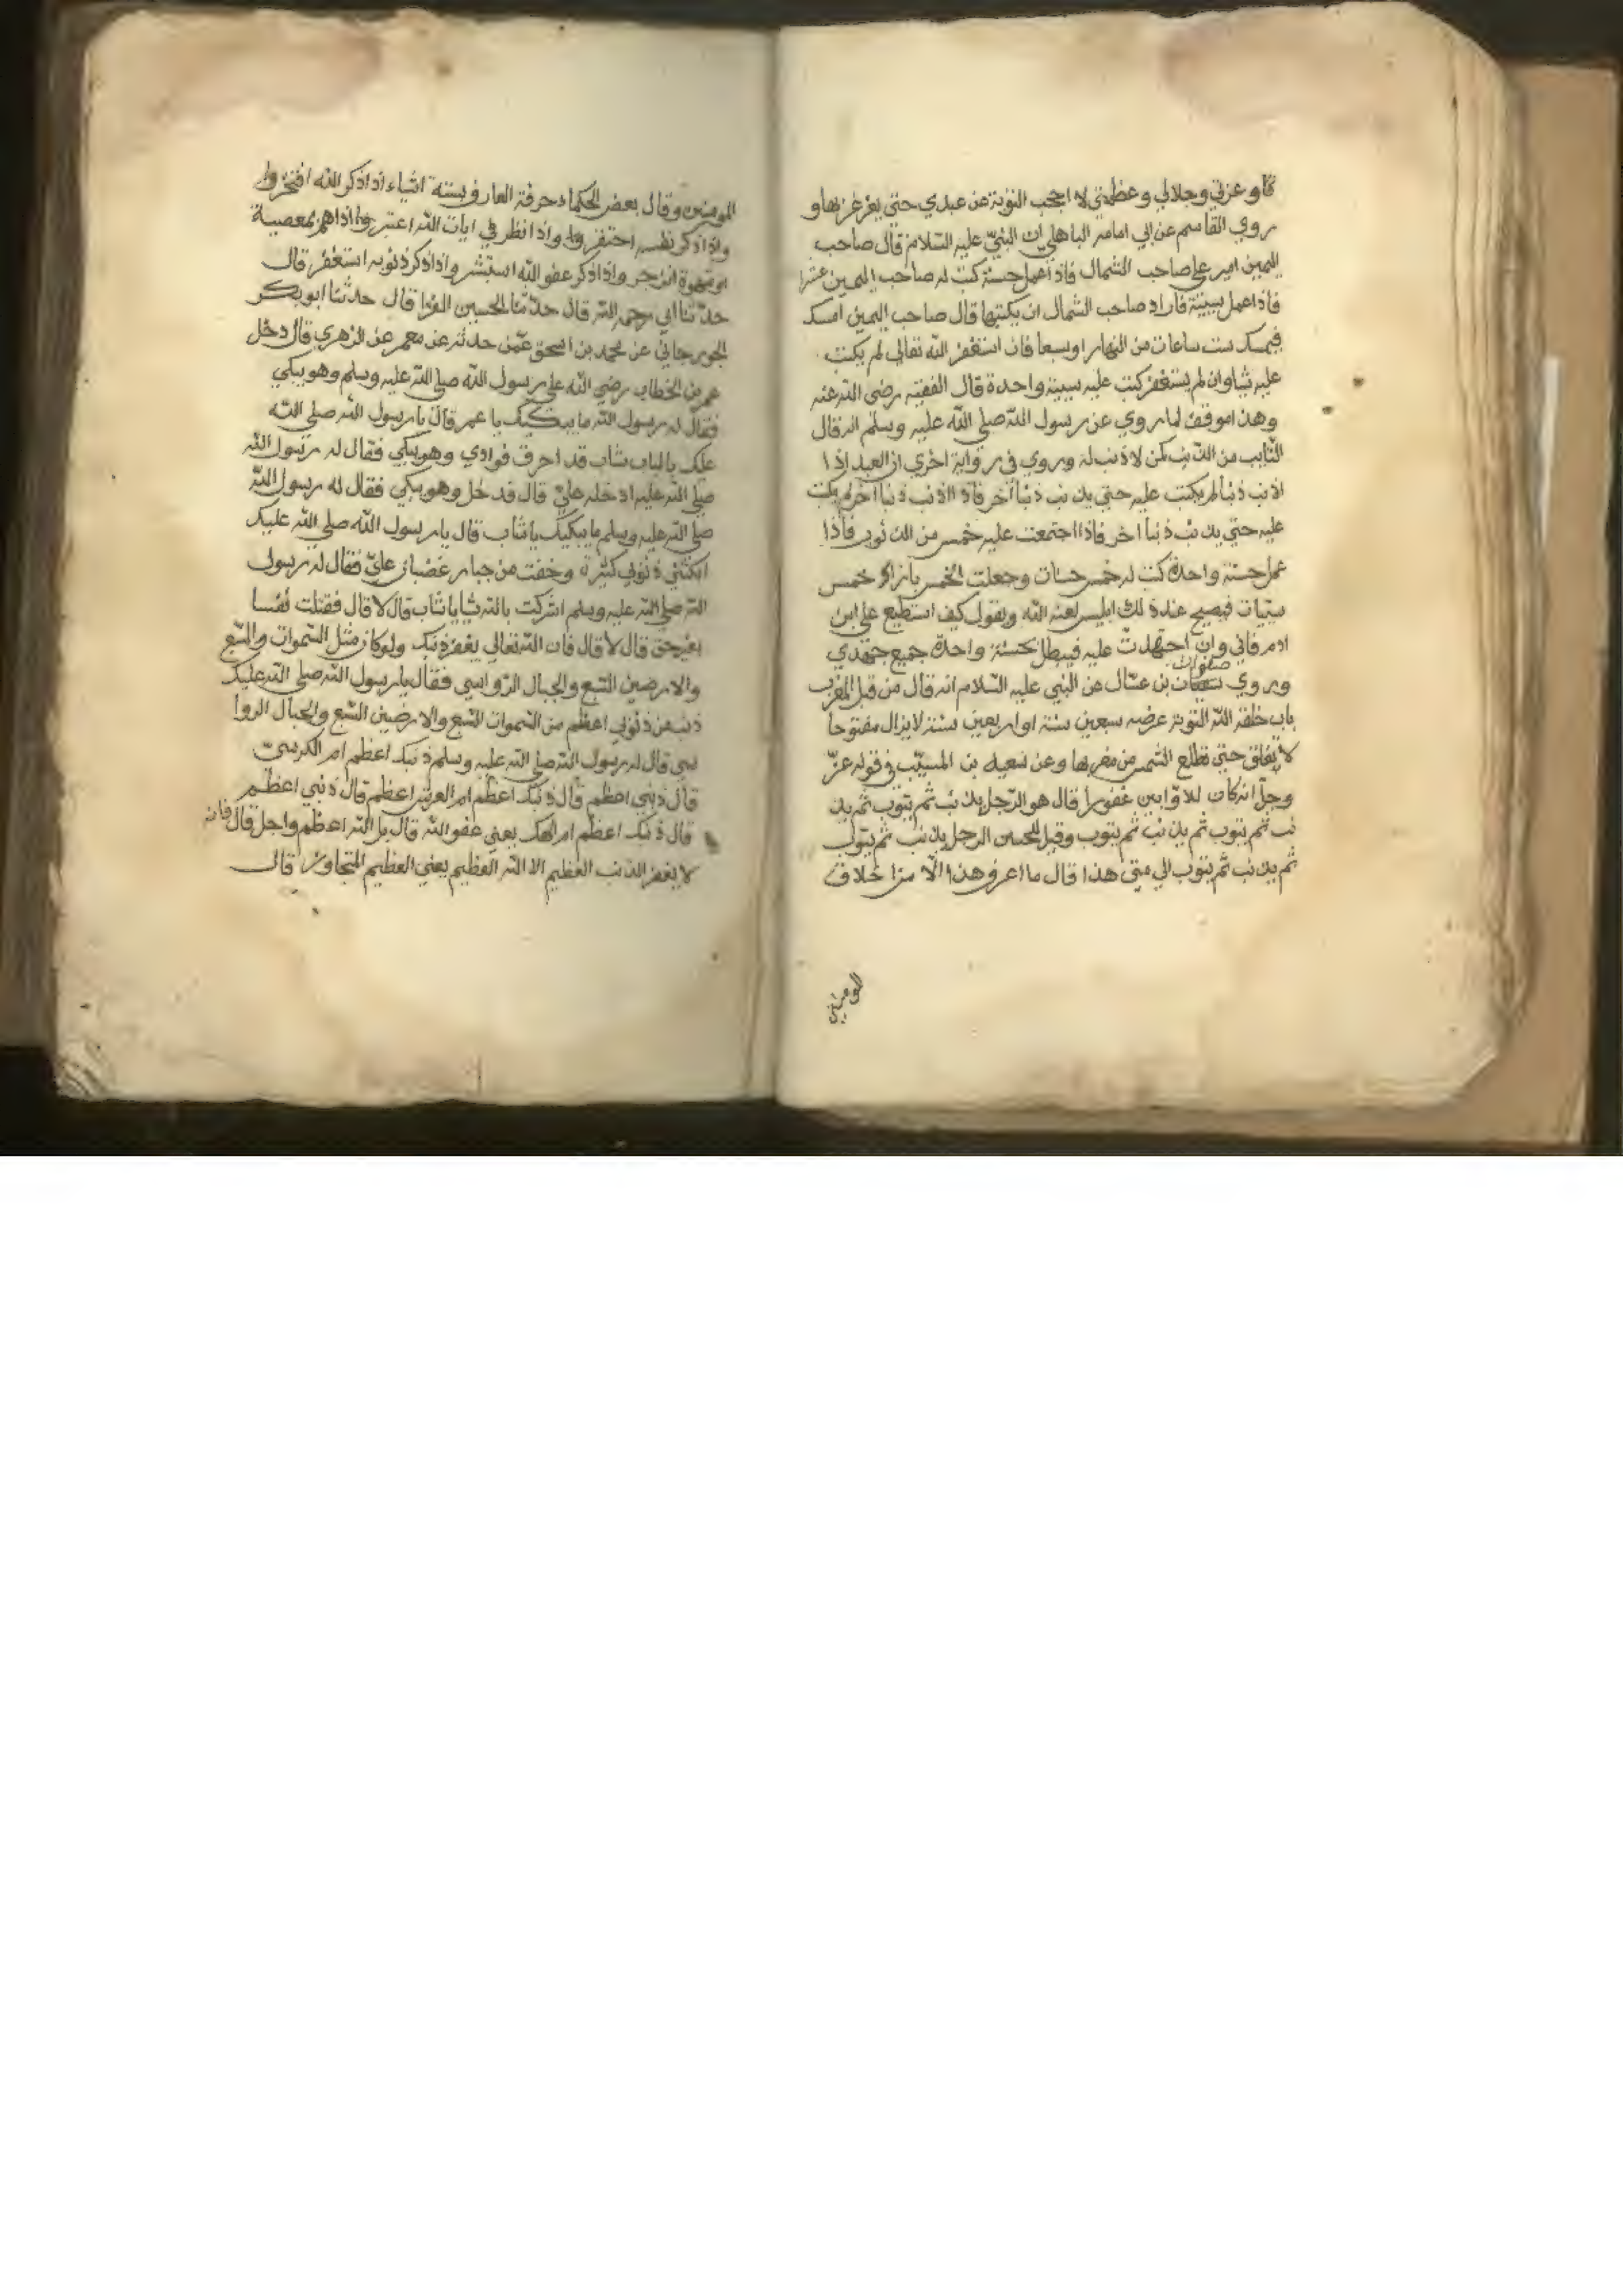 وعزتي وجلالي وعظمتي لا احجب التوبة عن عبدي حتي يغرغر بها و
روي القاسم عن ابي امامه الباهلي ان النبي عليه السلام قال صاحب
اليمين امير علي صاحب الشمال فاذا عمل حسنة كتب له صاحب اليمين عشرا
فاذا عمل سيئة فاراد صاحب الشمال ان يكتبها قال صاحب اليمين امسك
فيمسك ست ساعات من النهار او سبعا فان استغفر الله تعالى لم يكتب
عليه شيا وان لم يستغفر كتب عليه سيية واحدة قال الفقيه رضى الله عنه
وهذا موافق لما روي عن رسول الله صلي الله عليه وسلم انه قال
التايب من الذنب كمن لا ذنب له وروي في رواية اخري ان العبد اذا
اذنب ذنبا لم يكتب عليه حتي يذنب ذنبا آخر فاذا اذنب ذنبا آخر لم يكتب
عليه حتي يذنب ذنبا اخر فاذا اجتمعت عليه خمس من الذنوب فاذا
عمل حسنة واحدة كتب له خمس حسنات وجعلت الخمس بازاء خمس
سيئات فيصيح عند ذلك ابليس لعنه الله ويقول كيف استطيع علي ابن
ادم فاني وان اجتهدت عليه فيبطل بحسنة واحدة جميع جهدي
وروي صفوان بن عسال عن النبي عليه السلام انه قال من قبل المغرب
باب خلقه الله للتوبة عرضه سبعين سنة او اربعين سنة لا يزال مفتوحا
لا يغلق حتي تطلع الشمس من مغربها وعن سعيد بن المسيب في قوله عز
وجل انه كان للاوابين غفورا قال هو الرجل يذنب ثم يتوب ثم يذ
نب ثم يتوب ثم يذنب ثم يتوب وقيل للحسن الرجل يذنب ثم يتوب
ثم يذنب ثم يتوب الي متى هذا قال ما اعرف هذا الا من اخلاق
المومنين
المومنين وقال بعض الحكماء حرفة العارف ستة اشياء اذا ذكر الله افتخر
واذا ذكر نفسه احتقر واذا نظر في ايات الله اعتبر واذا هم بمعصية
او شهوة انزجر واذا ذكر عفو الله استبشر واذا ذكر ذنوبه استغفر قال
حدثنا ابي رحمه الله قال حدثنا الحسين الفرا قال حدثنا ابو بكر
الجورجاني عن محمد بن اسحق عمن حدثه عن معمر عن الزهري قال دخل
عمر بن الخطاب رضي الله علي رسول الله صلي الله عليه وسلم وهو يبكي
فقال له رسول الله ما يبكيك يا عمر قال يا رسول الله صلي الله
عليك بالباب شاب قد احرق فوادي وهو يبكي فقال له رسول الله
صلي الله عليه ادخله علي قال فدخل وهو يبكي فقال له رسول الله
صلي الله عليه وسلم ما يبكيك يا شاب قال يا رسول الله صلي الله عليك
ابكتني ذنوب كثيرة وخفت من جبار غضبان علي فقال له رسول
الله صلي الله عليه وسلم اشركت بالله شيا يا شاب قال لا قال فقتلت نفسا
بغير حق قال لا قال فان الله تعالي يغفر ذنبك ولو كان مثل السموات والسبع
والارضين السبع والجبال الرواسي فقال يا رسول الله صلي الله عليك
ذنب من ذنوبي اعظم من السموات السبع والارضين السبع والجبال الروا
سي قال له رسول الله صلي الله عليه وسلم ذنبك اعظم ام الكرسي
قال ذنبي اعظم قال ذنبك اعظم ام العرش اعظم قال ذنبي اعظم
قال ذنبك اعظم ام الهك يعني عفو الله قال بل الله اعظم واجل قال فانه
لا يغفر الذنب العظيم الا الله العظيم يعني العظيم المتجاوز قال